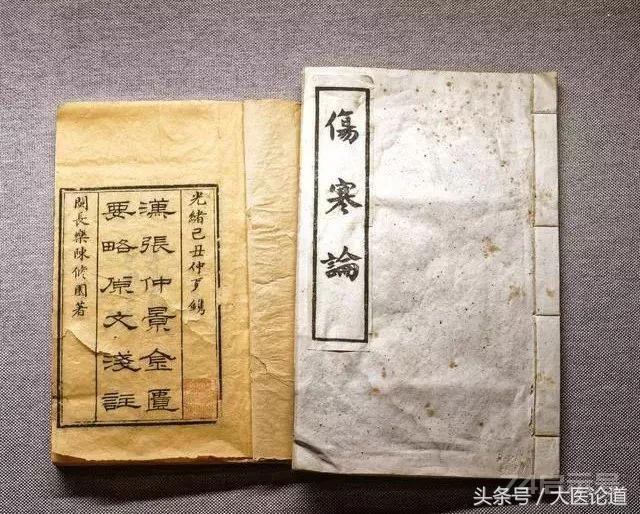 光緒己丑仲夏鐫
漢張仲景金匱
要略原文淺註
閩長樂陳修園著
傷寒論
头条号／大医论道